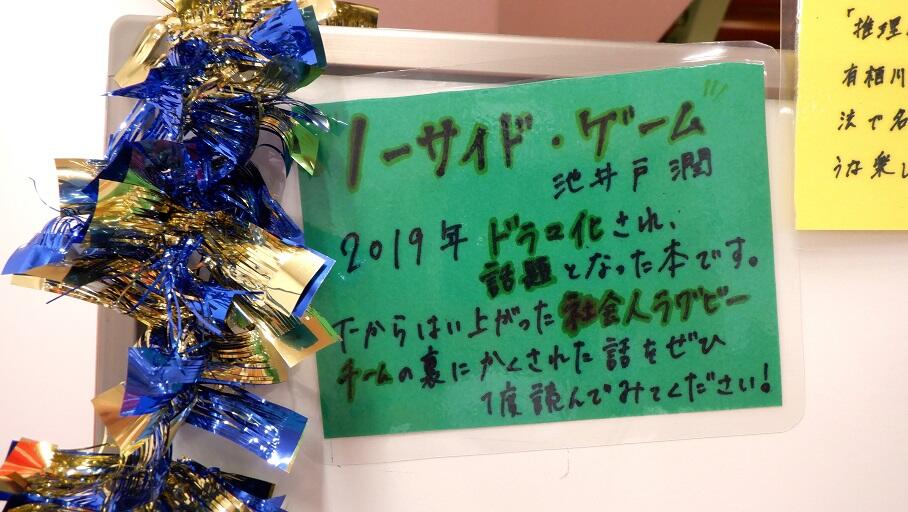 ノーサイド・ゲーム
池井戸 潤
2019年 ドラマ化され、
話題となった本です。
下からはい上がった社会人ラグビー
チームの裏にかくされた話をぜひ
1度読んでみてください!
「推理
有栖川
法で名
うな楽し